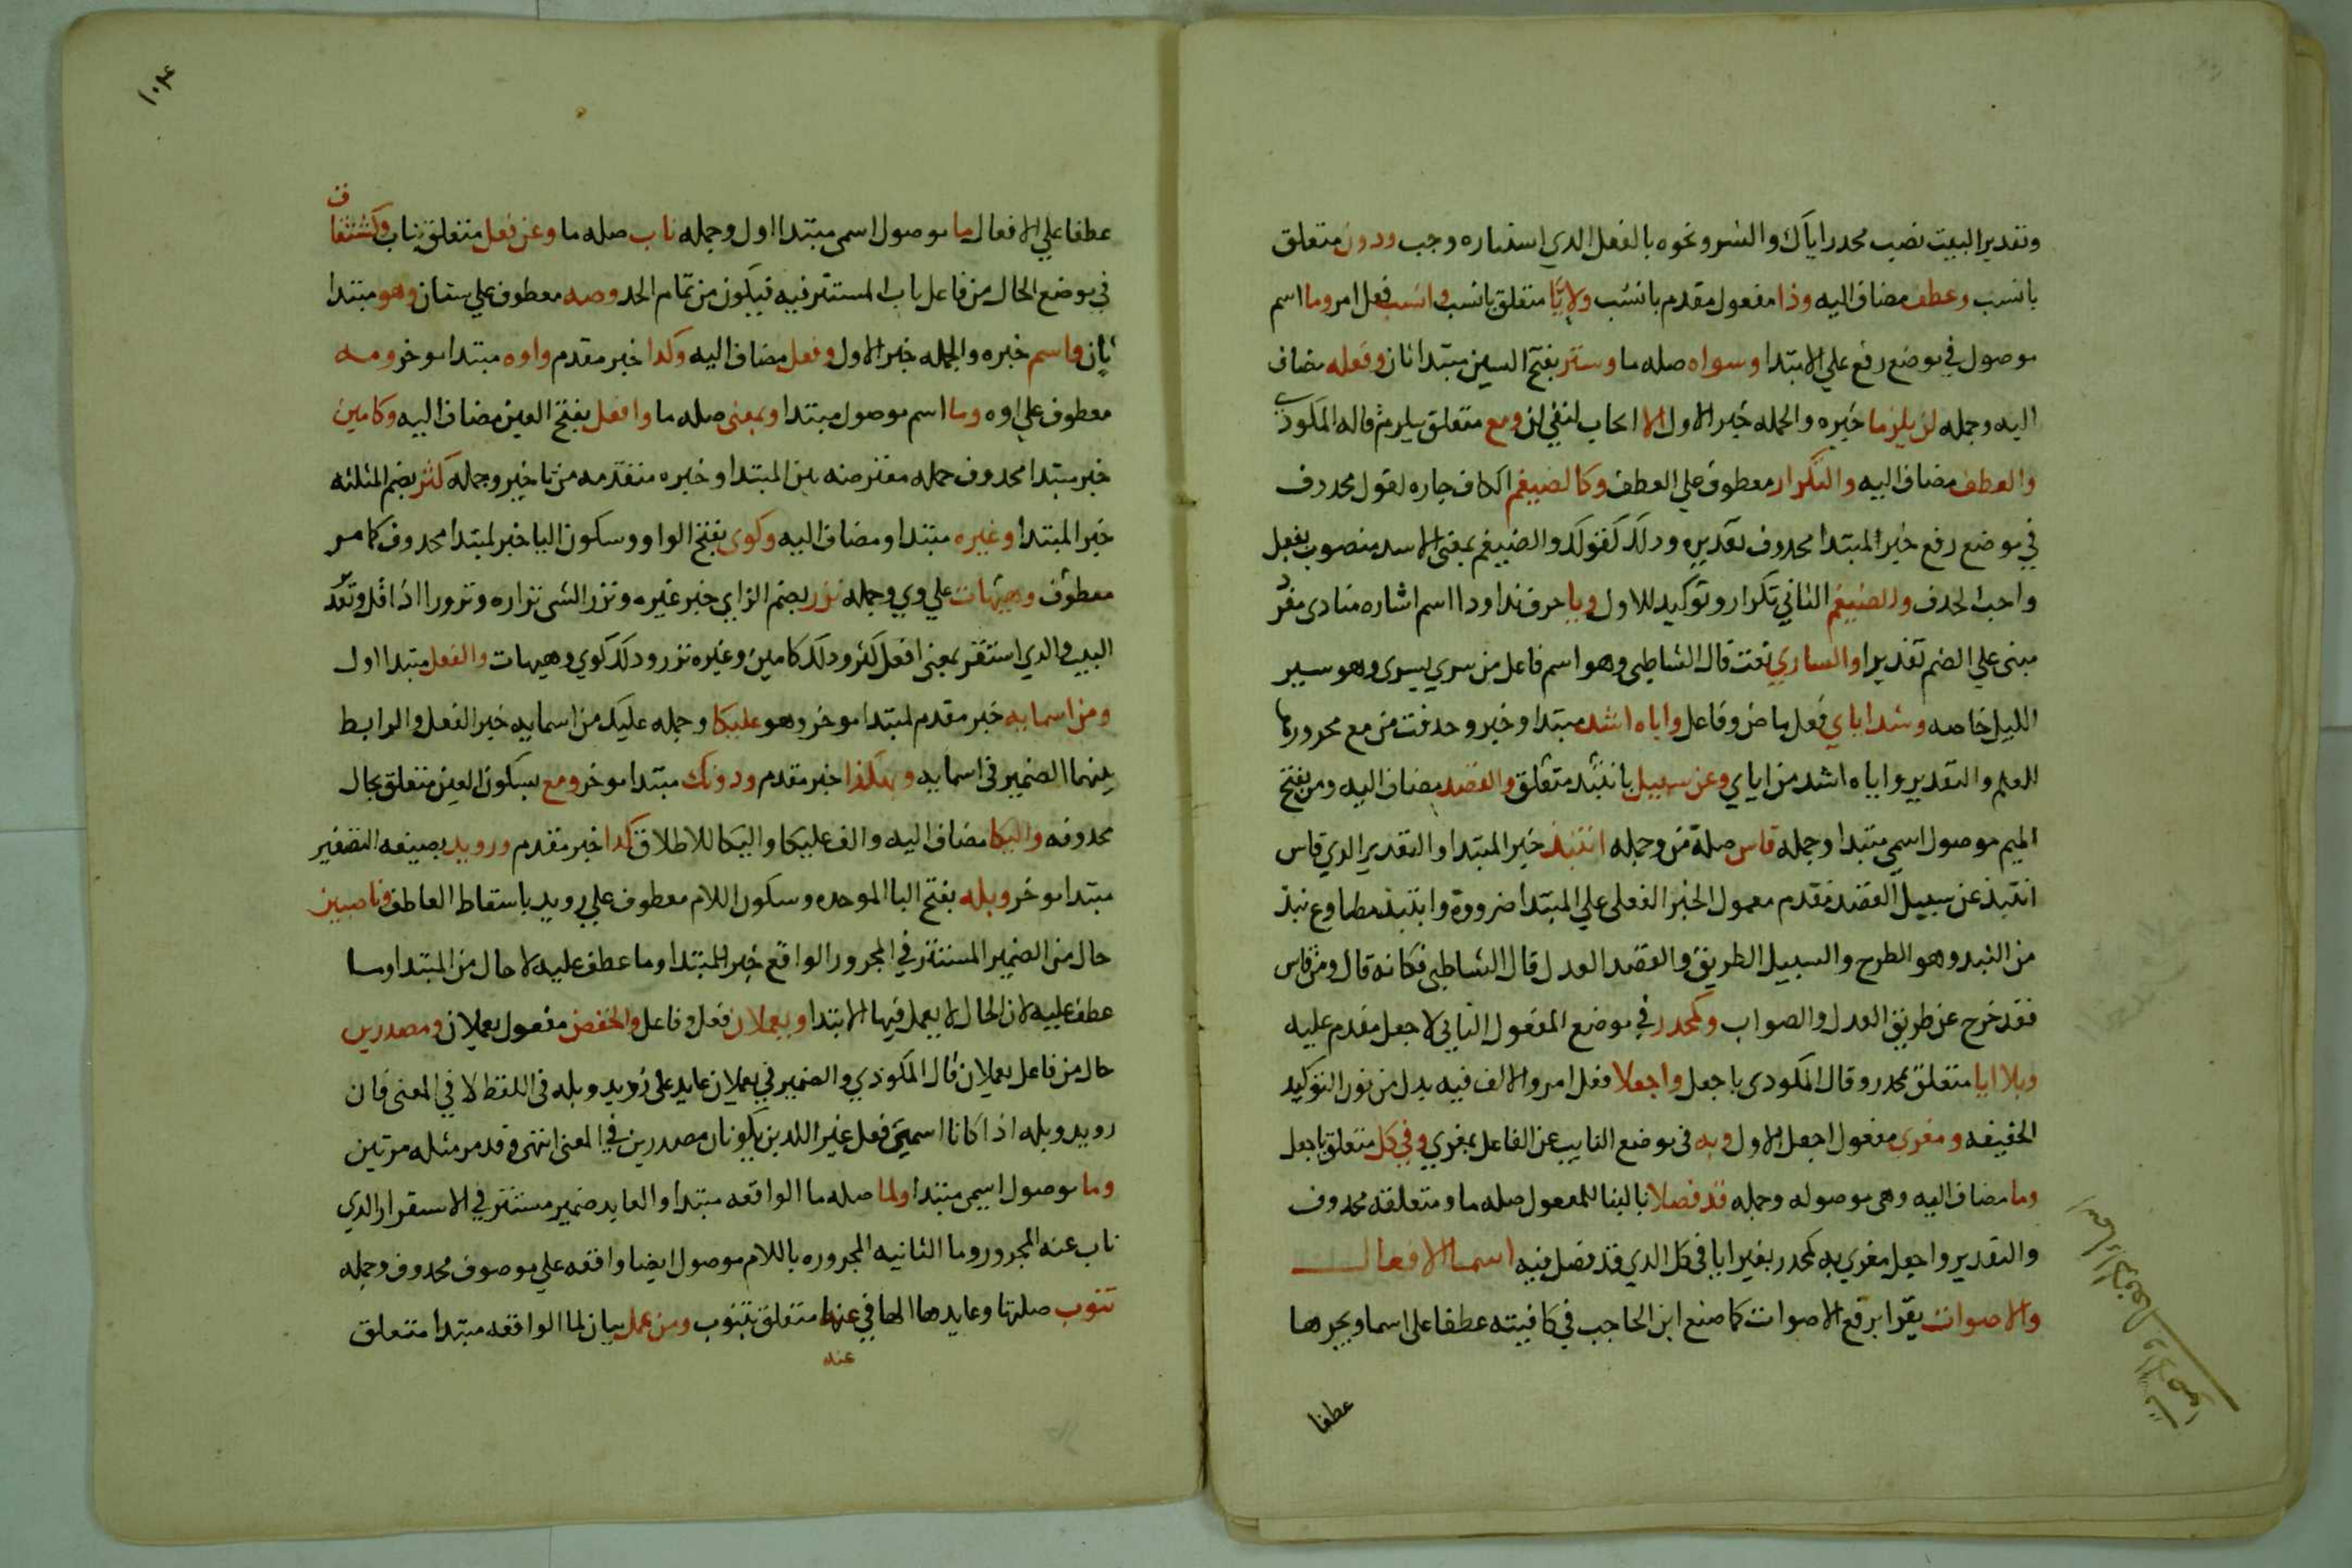 وتقدير البيت نصب محذرا اياك والشر ونحوه بالفعل الذي استتاره وجب ودون متعلق
بانسب وعطف مضاف اليه وذا مفعول مقدم بانسب ولايّا متعلق بانسب وانسب فعل امر وما اسم
موصول في موضع رفع علي الابتدا وسواه صله ما وستر بفتح السين مبتدا ثان وفعله مضاف
اليه وجمله لن يلزما خبره والجمله خبر الاول الا ايجاب لنفي لن ومع متعلق بيلزم قاله المكودي
والعطف مضاف اليه والتكرار معطوف علي العطف وكالضيغم الكاف جاره لقول محذوف
في موضع رفع خبر المبتدا محذوف تقديره وذلك كقولك والضيغم بمعني الاسد منصوب بفعل
واجب الحذف والضيغم الثاني تكرار وتوكيد للاول ويا حرف ندا وذا اسم اشاره منادى مفرد
مبني علي الضم تقديرا والساري نعت قال الشاطبي وهو اسم فاعل من سري يسري وهو سير
الليل خاصه وشذ اياي فعل ماض وفاعل واياه اشذ مبتدا وخبر وحذفت من مع مجرورها
للعلم والتقدير واياه اشذ من اياي وعن سبيل بانتبذ متعلق والقصد مضاف اليه ومن بفتح
الميم موصول اسمي مبتدا وجمله قاس صلة من وجمله انتبذ خبر المبتدا والتقدير الذي قاس
انتبذ عن سبيل القصد فقدم معمول الخبر الفعلي علي المبتدا ضرورة وانتبذ مطاوع نبذ
من النبذ وهو الطرح والسبيل الطريق والقصد العدل قال الشاطبي فكانه قال ومن قاس
فقد خرج عن طريق العدل والصواب وكمحذر في موضع المفعول الثاني لاجعل مقدم عليه
وبلا ايا متعلق بمحذر وقال المكودي باجعل واجعلا فعل امر والالف فيه بدل من نون التوكيد
الخفيفه ومغري مفعول اجعل الاول وبه في موضع النايب عن الفاعل بمغري وفي كل متعلق باجعل
وما مضاف اليه وهي موصوله وجمله قد فصلا بالبنا للمفعول صله ما ومتعلقه محذوف
والتقدير واجعل مغري به كمحذر بغير ايا في كل الذي قد فصل فيه اسما الافعال
والاصوات يقرا برفع الاصوات كما صنع ابن الحاجب في كافيته عطفا علي اسما وبجرها
عطفا
عطفا علي الافعال ما موصول اسمي مبتدا اول وجمله ناب صله ما وعن فعل متعلق بناب وكشتان
في موضع الحال من فاعل ناب المستتر فيه فيكون من تمام الحد وصه معطوف علي شتان وهو مبتدا
ثان واسم خبره والجمله خبر الاول وفعل مضاف اليه وكذا خبر مقدم واوه مبتدا موخر ومه
معطوف علي اوه وما اسم موصول مبتدا وبمعني صله ما وافعل بفتح العين مضاف اليه وكامين
خبر مبتدا محذوف جمله معترضه بين المبتدا وخبره متقدمه من تاخير وجمله كثر بضم المثلثه
خبر المبتدا وغيره مبتدا ومضاف اليه وكوي بفتح الواو وسكون اليا خبر لمبتدا محذوف كما مر
معطوف وهيهات علي وي وجمله نزر بضم الزاي خبر غيره ونزر الشي نزاره ونزورا اذا قل وتقد
البيت والذي استقر بمعني افعل كثر وذلك كامين وغيره نزر وذلك كوي وهيهات والفعل مبتدا اول
ومن اسمايه خبر مقدم لمبتدا موخر وهو عليكا وجمله عليك من اسمايه خبر الفعل والرابط
بينهما الضمير في اسمايه وهكذا خبر مقدم ودونك مبتدا موخر ومع بسكون العين متعلق بحال
محذوفه واليكا مضاف اليه والف عليكا واليكا للاطلاق كذا خبر مقدم ورويد بصيغه التصغير
مبتدا موخر وبله بفتح البا الموحده وسكون اللام معطوف علي رويد باسقاط العاطف وناصبين
حال من الضمير المستتر في المجرور الواقع خبر المبتدا وما عطف عليه لا حال من المبتدا وما
عطف عليه لان الحال لا يعمل فيها الابتدا ويعملان فعل وفاعل والخفض مفعول يعملان ومصدرين
حال من فاعل يعملان قال المكودي والضمير في يعملان عايد علي رويد وبله في اللفظ لا في المعني فان
رويد وبله اذا كانا اسمي فعل غير اللذين يكونان مصدرين في المعني انتهي وقد مر مثله مرتين
وما موصول اسمي مبتدا ولما صله ما الواقعه مبتدا والعايد ضمير مستتر في الاستقرار الذي
ناب عنه المجرور وما الثانيه المجروره باللام موصول ايضا واقعه علي موصوف محذوف وجمله
تنوب صلتها وعايدها الها في عنها متعلق بتنوب ومن عمل بيان لما الواقعه مبتدا متعلق
عنه